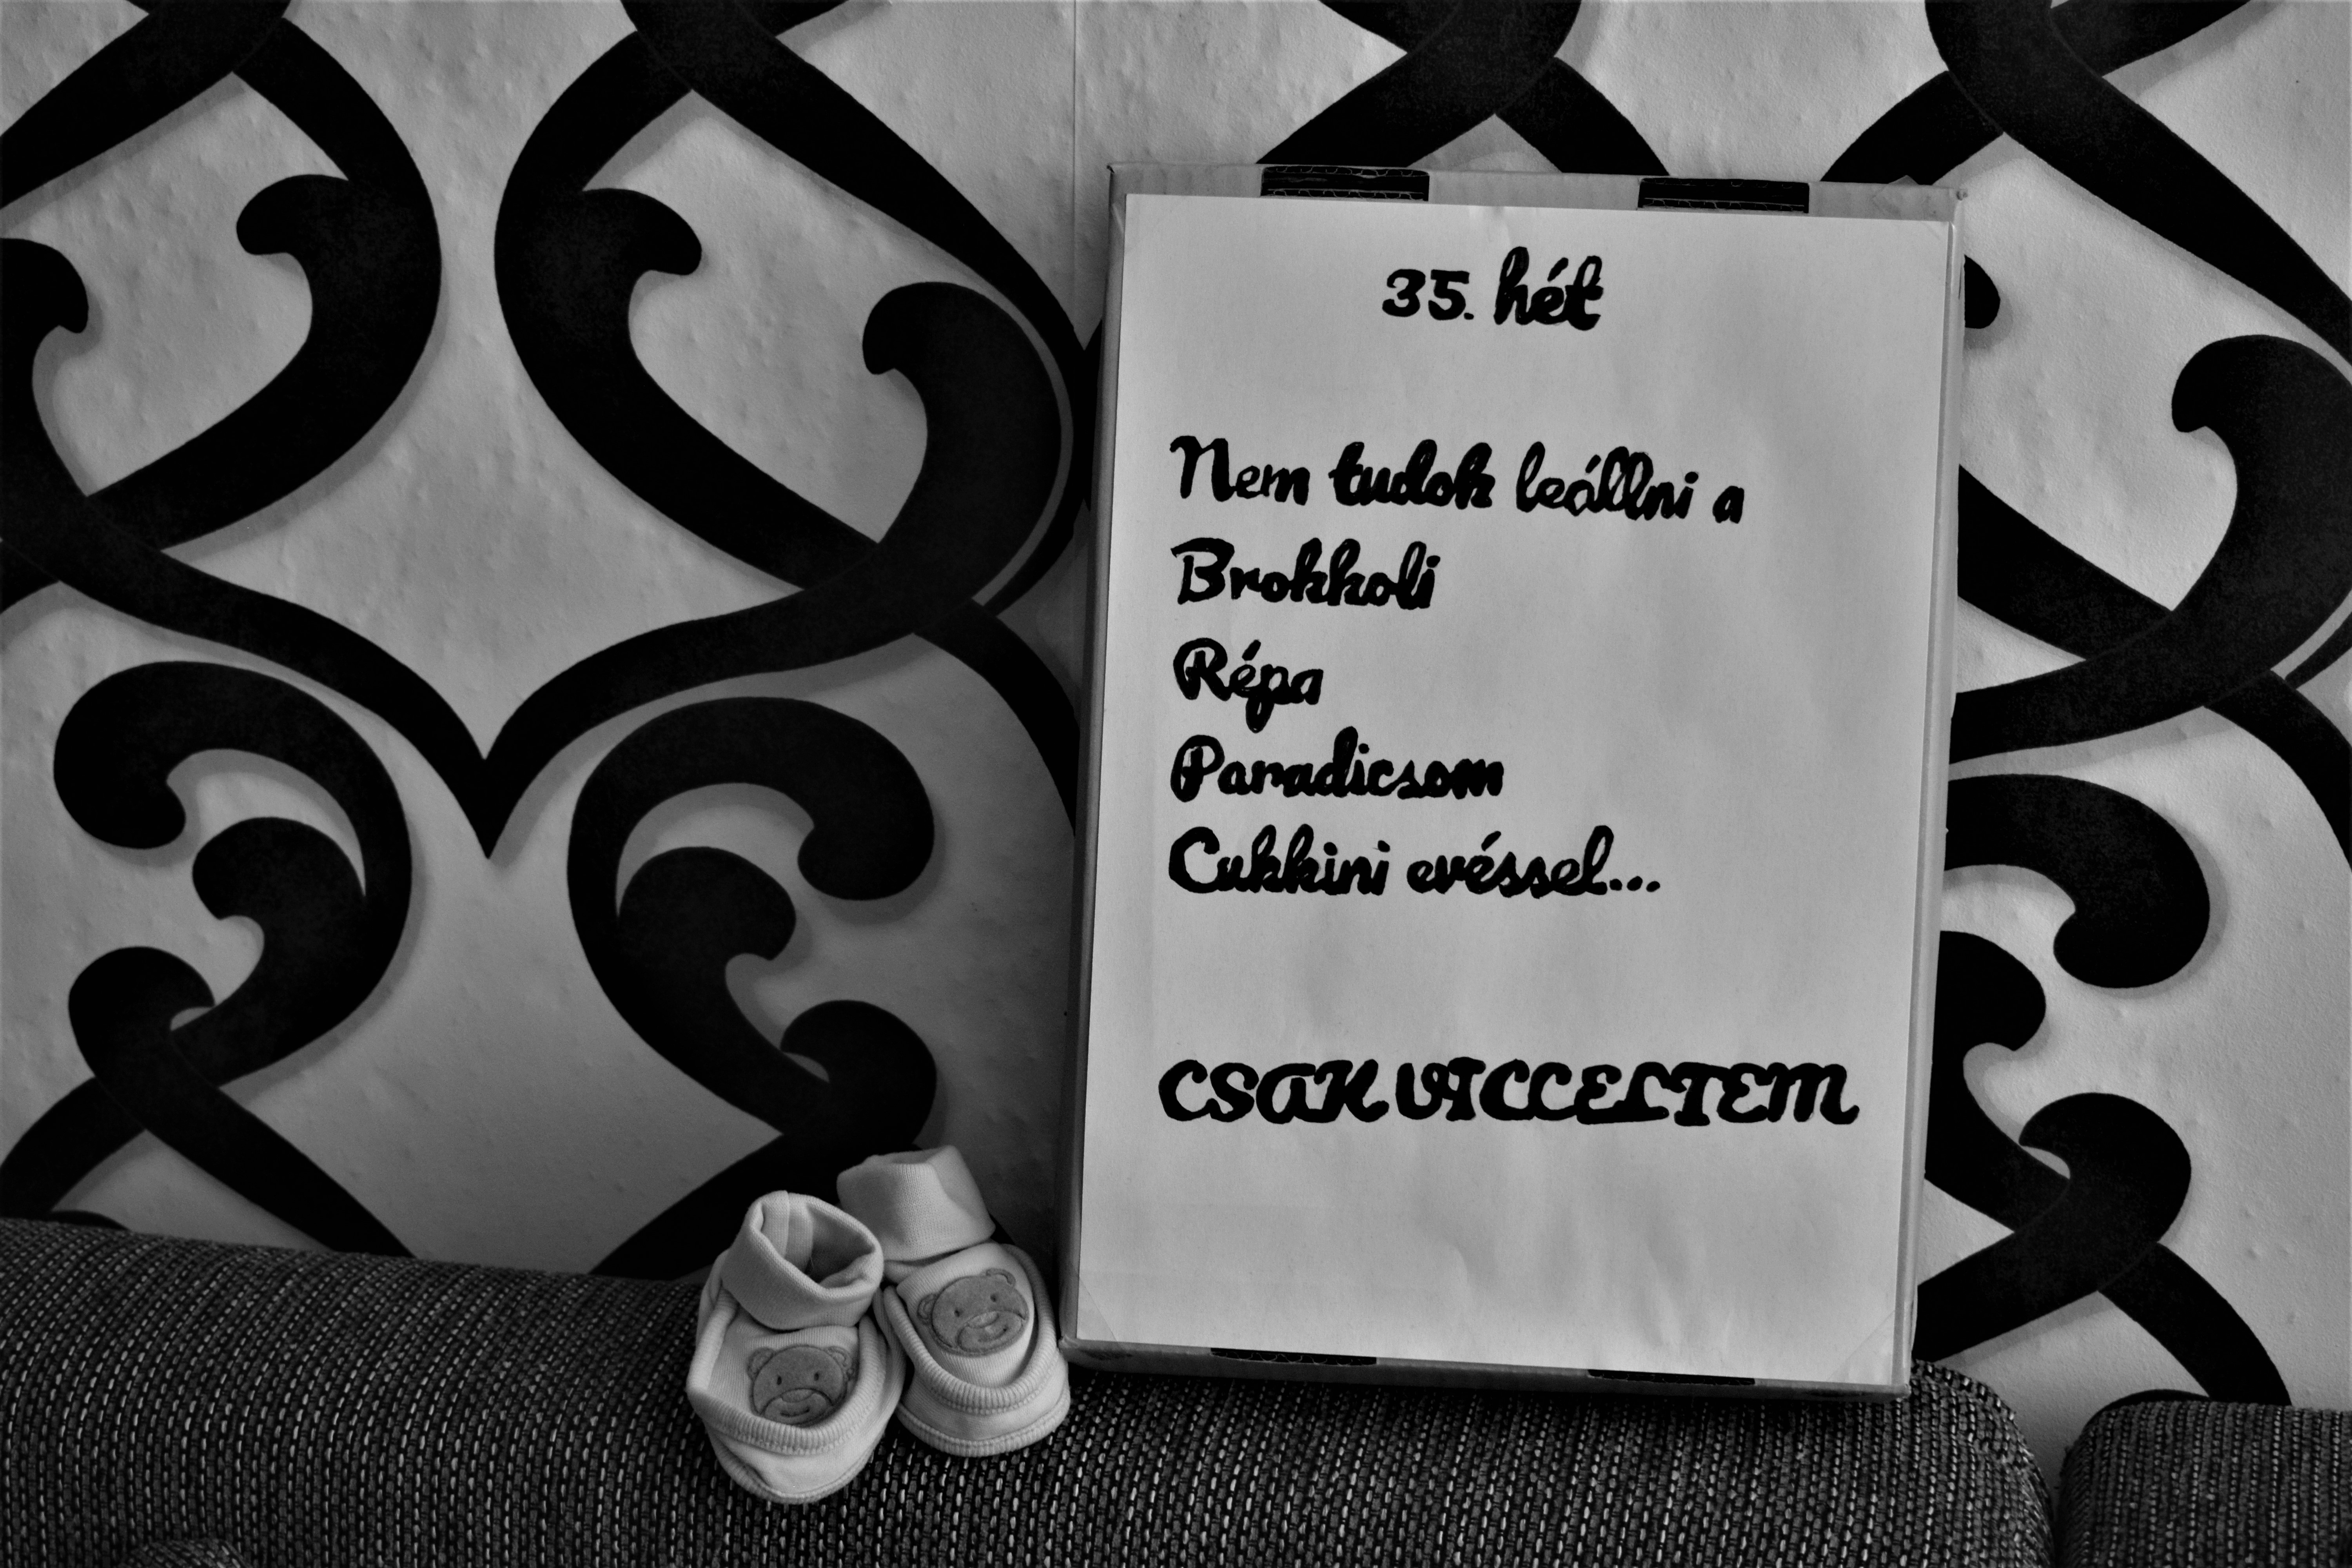 35. hét
Nem tudok leállni a
Brokkoli
Répa
Paradicsom
Cukkini evéssel...
CSAK VICCELTEM